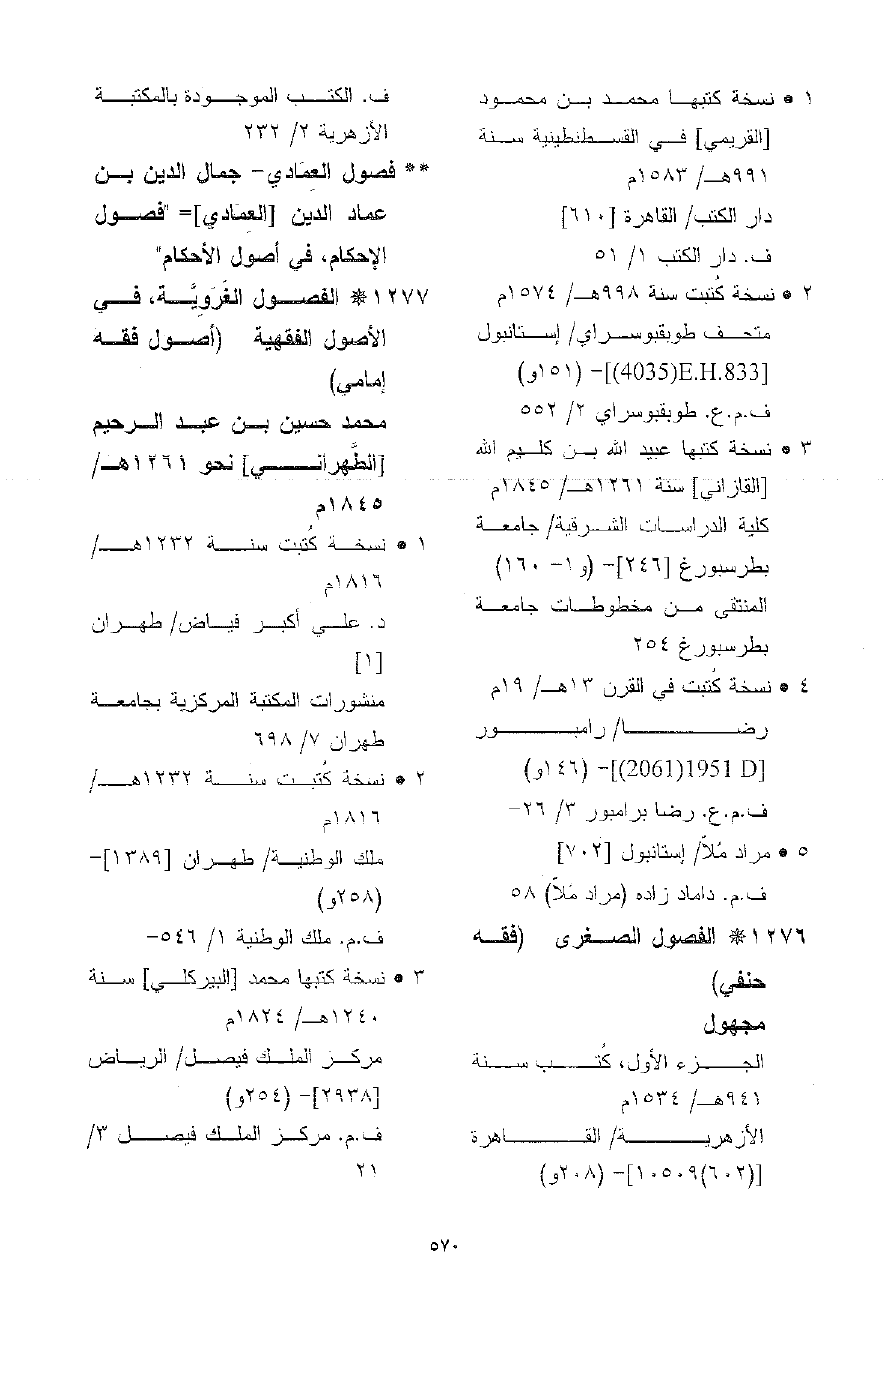 ١ • نسخة كتبها محمد بن محمود
[القريمي] في القسطنطينية سنة
٩٩١هـ/ ١٥٨٣م
دار الكتب/ القاهرة [٦١٠]
ف. دار الكتب ١/ ٥١
٢ • نسخة كُتبت سنة ٩٩٨هـ/ ١٥٧٤م
متحف طوبقبوسراي/ إستانبول
[E.H.833(4035)]- (١٥١و)
ف.م.ع. طوبقبوسراي ٢/ ٥٥٢
٣ • نسخة كتبها عبيد الله بن كليم الله
[القازاني] سنة ١٢٦١هـ/ ١٨٤٥م
كلية الدراسات الشرقية/ جامعة
بطرسبورغ [٢٤٦]- (و١- ١٦٠)
المنتقى من مخطوطات جامعة
بطرسبورغ ٢٥٤
٤ • نسخة كُتبت في القرن ١٣هـ/ ١٩م
رضا/ رامبور
[1951 D(2061)]- (١٤٦و)
ف.م.ع. رضا برامبور ٣/ ٢٦-
٥ • مراد مُلاَّ/ إستانبول [٧٠٢]
ف.م. داماد زاده (مراد مَلاَّ) ٥٨
١٢٧٦* الفصول الصغرى (فقه
حنفي)
مجهول
الجزء الأول، كُتب سنة
٩٤١هـ/ ١٥٣٤م
الأزهرية/ القاهرة
[(٦٠٢)١٠٥٠٩]- (٢٠٨و)
ف. الكتب الموجودة بالمكتبة
الأزهرية ٢/ ٢٣٢
** فصول العِمَادي- جمال الدين بن
عماد الدين [العِمَادي]= "فصول
الإحكام، في أصول الأحكام"
١٢٧٧* الفصول الغَرَويَّة، في
الأصول الفقهية (أصول فقه
إمامي)
محمد حسين بن عبد الرحيم
[الطَّهراني] نحو ١٢٦١هـ/
١٨٤٥م
١ • نسخة كُتبت سنة ١٢٣٢هـ/
١٨١٦م
د. علي أكبر فياض/ طهران
[١]
منشورات المكتبة المركزية بجامعة
طهران ٧/ ٦٩٨
٢ • نسخة كُتبت سنة ١٢٣٢هـ/
١٨١٦م
ملك الوطنية/ طهران [١٣٨٩]-
(٢٥٨و)
ف.م. ملك الوطنية ١/ ٥٤٦-
٣ • نسخة كتبها محمد [البيركلي] سنة
١٢٤٠هـ/ ١٨٢٤م
مركز الملك فيصل/ الرياض
[٢٩٣٨]- (٢٥٤و)
ف.م. مركز الملك فيصل ٣/
٢١
٥٧٠